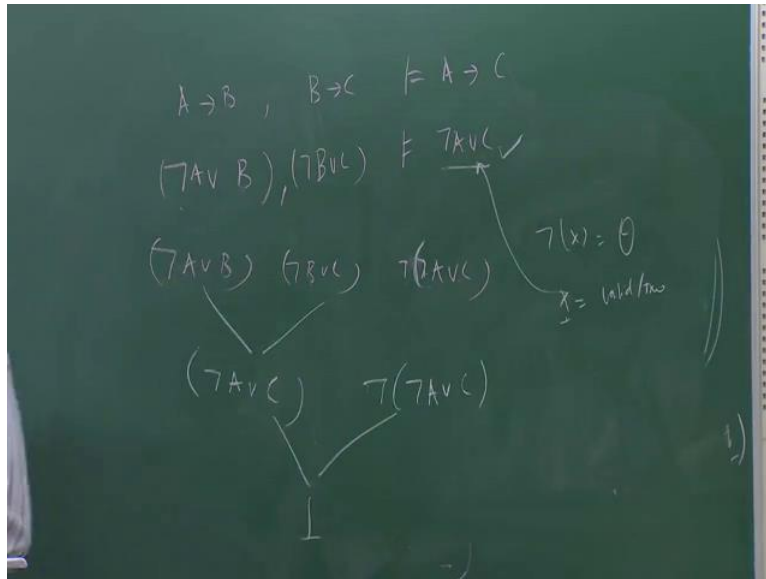 A → B , B → C ⊨ A → C
(¬A ∨ B), (¬B ∨ C) ⊨ ¬A ∨ C ✓
(¬A ∨ B) (¬B ∨ C) ¬(¬A ∨ C)
¬(x) = θ
x = valid/True
(¬A ∨ C) ¬(¬A ∨ C)
⊥